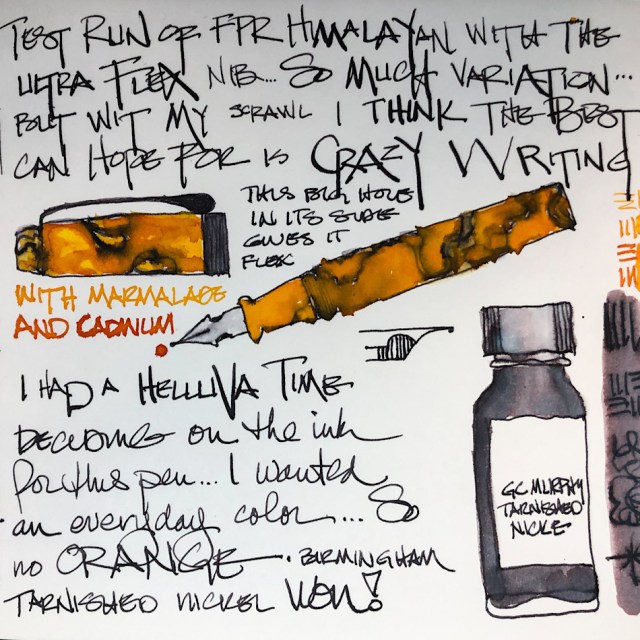 TEST RUN OF FPR HIMALAYAN WITH THE
ULTRA FLEX NIB... SO MUCH VARIATION...
BUT WIT MY SCRAWL I THINK THE BEST
CAN HOPE FOR IS CRAZY WRITING
THIS BIG HOLE
IN ITS SIDE
GIVES IT
FLEX
WITH MARMALADE
AND CADMIUM
I HAD A HELLUVA TIME
DECIDING on the ink
for this pen... I wanted
an everyday color... So
no ORANGE. BIRMINGHAM
TARNISHED NICKEL WON!
GC MURPHY
TARNISHED
NICKE